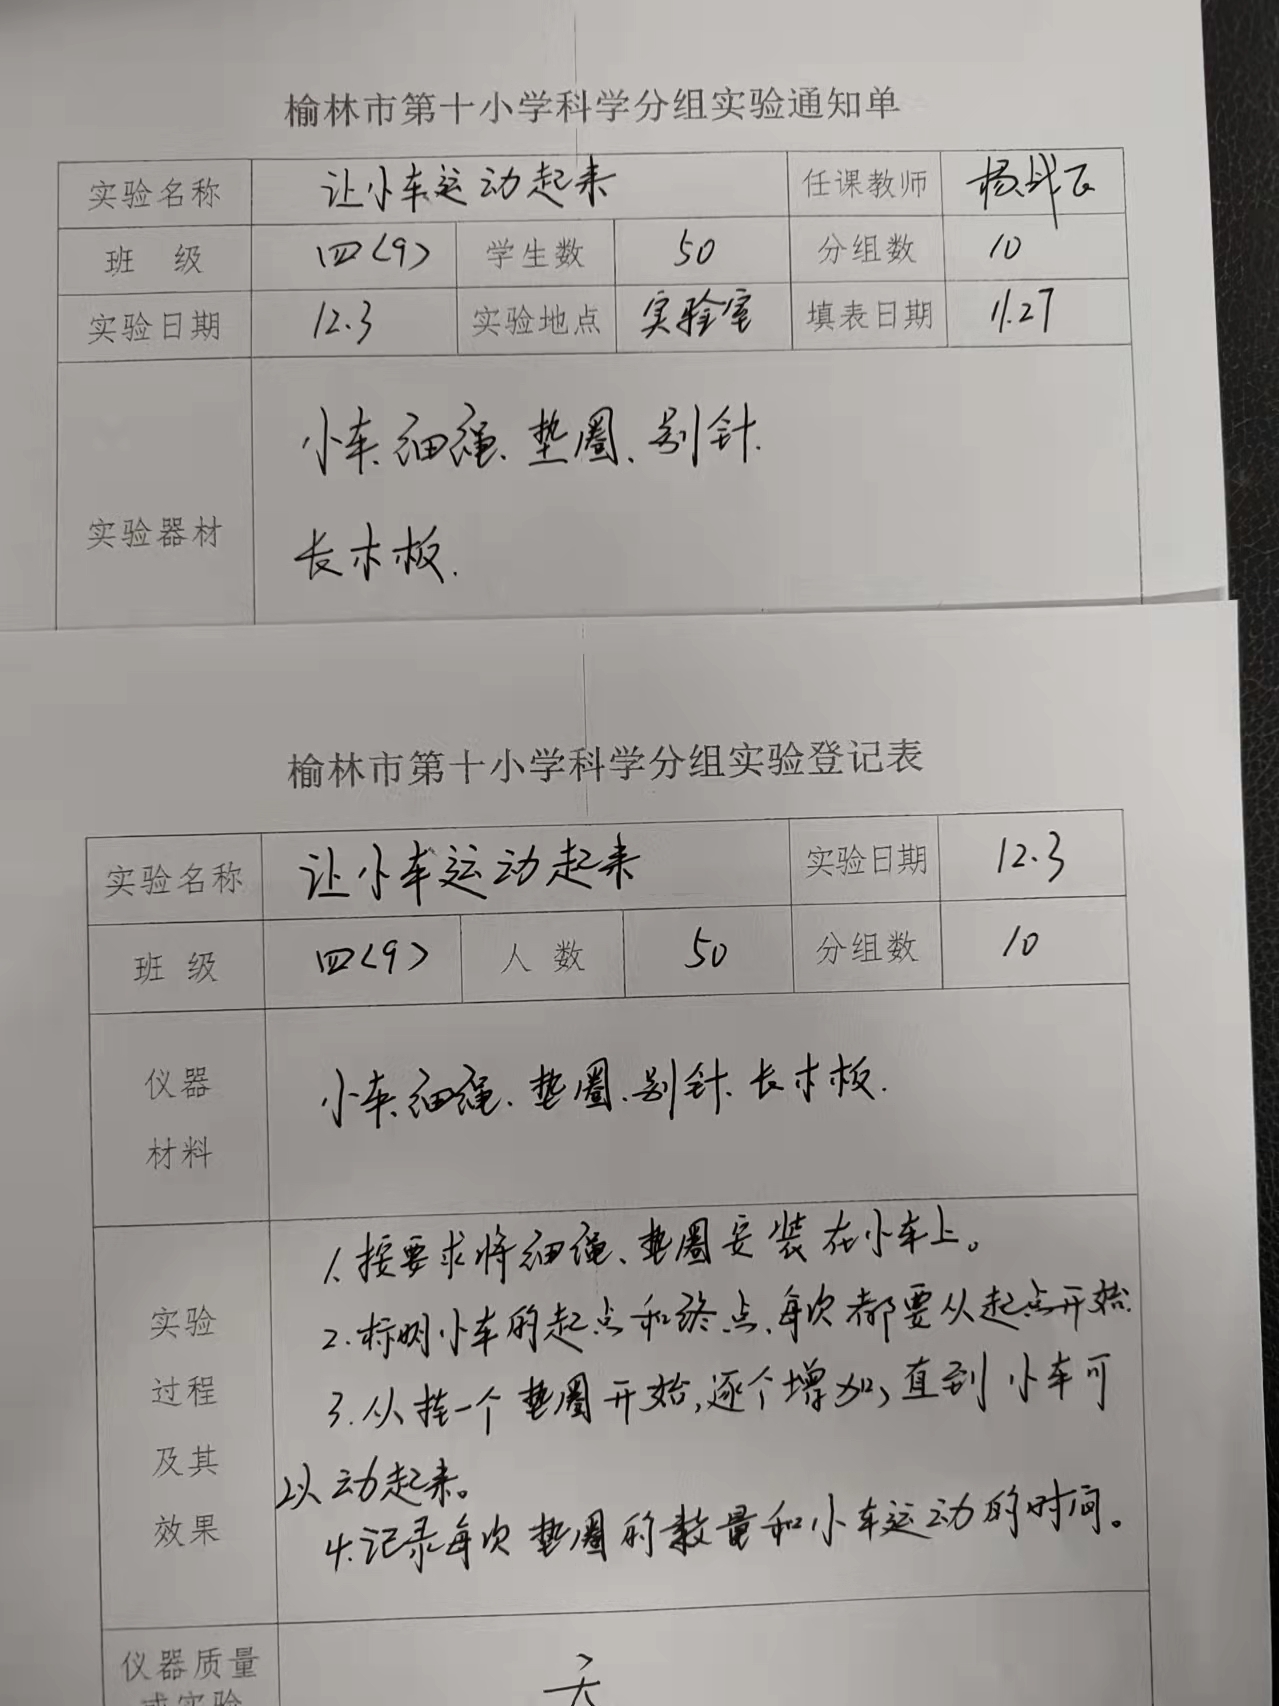 榆林市第十小学科学分组实验通知单
实验名称 让小车运动起来 任课教师 杨
班 级 四(9) 学生数 50 分组数 10
实验日期 12.3 实验地点 实验室 填表日期 11.27
小车、细绳、垫圈、别针.
实验器材
长木板.
榆林市第十小学科学分组实验登记表
实验名称 让小车运动起来 实验日期 12.3
班 级 四(9) 人 数 50 分组数 10
仪器
材料
小车、细绳、垫圈、别针、长木板.
实验
过程
及其
效果
1.按要求将细绳、垫圈安装在小车上。
2.标明小车的起点和终点,每次都要从起点开始.
3.从挂一个垫圈开始,逐个增加,直到小车可
以动起来。
4.记录每次垫圈的数量和小车运动的时间。
仪器质量
或实验